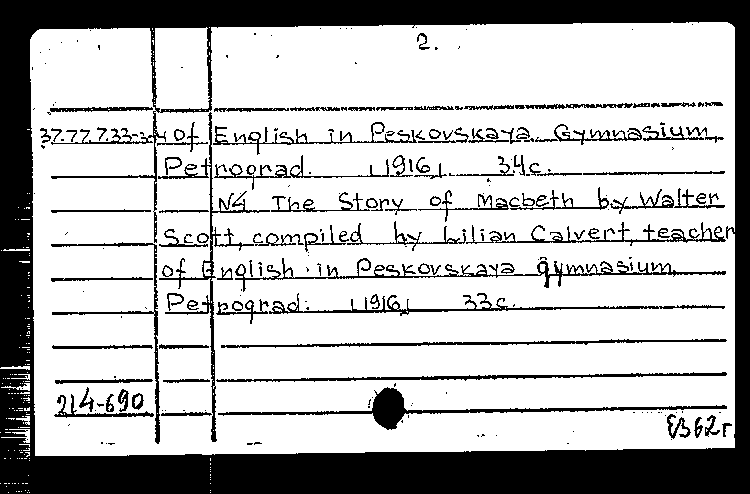 2.
37.77.7.33-3-4 of English in Peskovskaya Gymnasium,
Petrograd. [1916]. 34c.
№4 The Story of Macbeth by Walter
Scott, compiled by Lilian Calvert, teacher
of English in Peskovskaya gymnasium,
Petrograd. [1916] 33c.
214-690
ЕВ62г